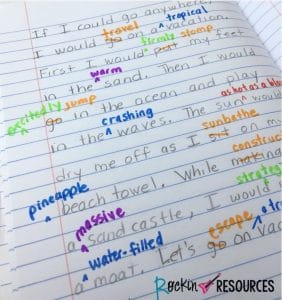 If I could go anywhere,
travel tropical
I would go on a vacation.
firmly stomp
First I would put my feet
warm
in the sand. Then I would
excitedly jump
go in the ocean and play
crashing as hot as a bla
in the waves. The sun would
sunbathe
dry me off as I sit on m
construc
pineapple beach towel. While making
massive strateg
a sand castle, I would
water-filled escape a tr
a moat. Let's go on vac
Rockin RESOURCES